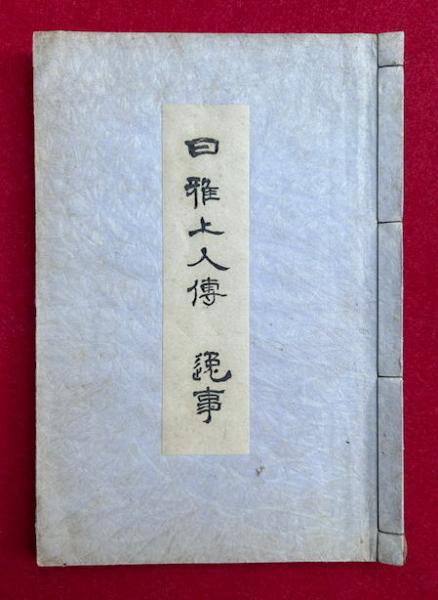 日雅上人傳 逸事